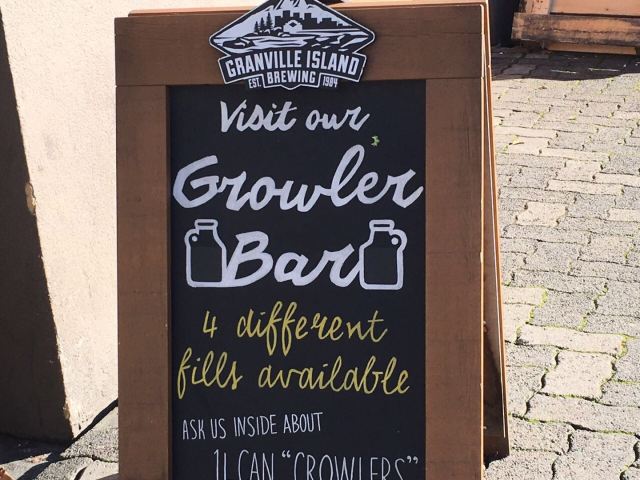 GRANVILLE ISLAND
EST. BREWING 1984
Visit our
Growler
Bar
4 different
fills available
ASK US INSIDE ABOUT
1L CAN "CROWLERS"